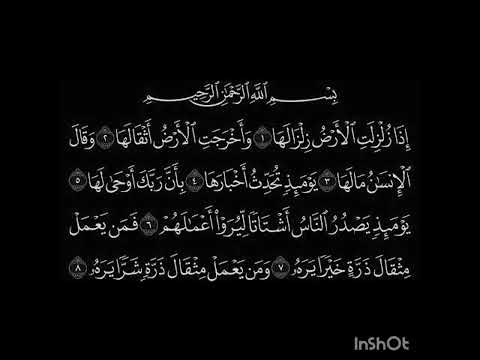 بِسْمِ ٱللَّهِ ٱلرَّحْمَٰنِ ٱلرَّحِيمِ
إِذَا زُلْزِلَتِ ٱلْأَرْضُ زِلْزَالَهَا ١ وَأَخْرَجَتِ ٱلْأَرْضُ أَثْقَالَهَا ٢ وَقَالَ
ٱلْإِنسَٰنُ مَا لَهَا ٣ يَوْمَئِذٍ تُحَدِّثُ أَخْبَارَهَا ٤ بِأَنَّ رَبَّكَ أَوْحَىٰ لَهَا ٥
يَوْمَئِذٍ يَصْدُرُ ٱلنَّاسُ أَشْتَاتًا لِّيُرَوْا۟ أَعْمَٰلَهُمْ ٦ فَمَن يَعْمَلْ
مِثْقَالَ ذَرَّةٍ خَيْرًا يَرَهُۥ ٧ وَمَن يَعْمَلْ مِثْقَالَ ذَرَّةٍ شَرًّا يَرَهُۥ ٨
InShOt